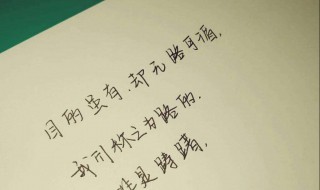 目的虽有.却无路可循,
我们称之为路的.
非是踌躇,